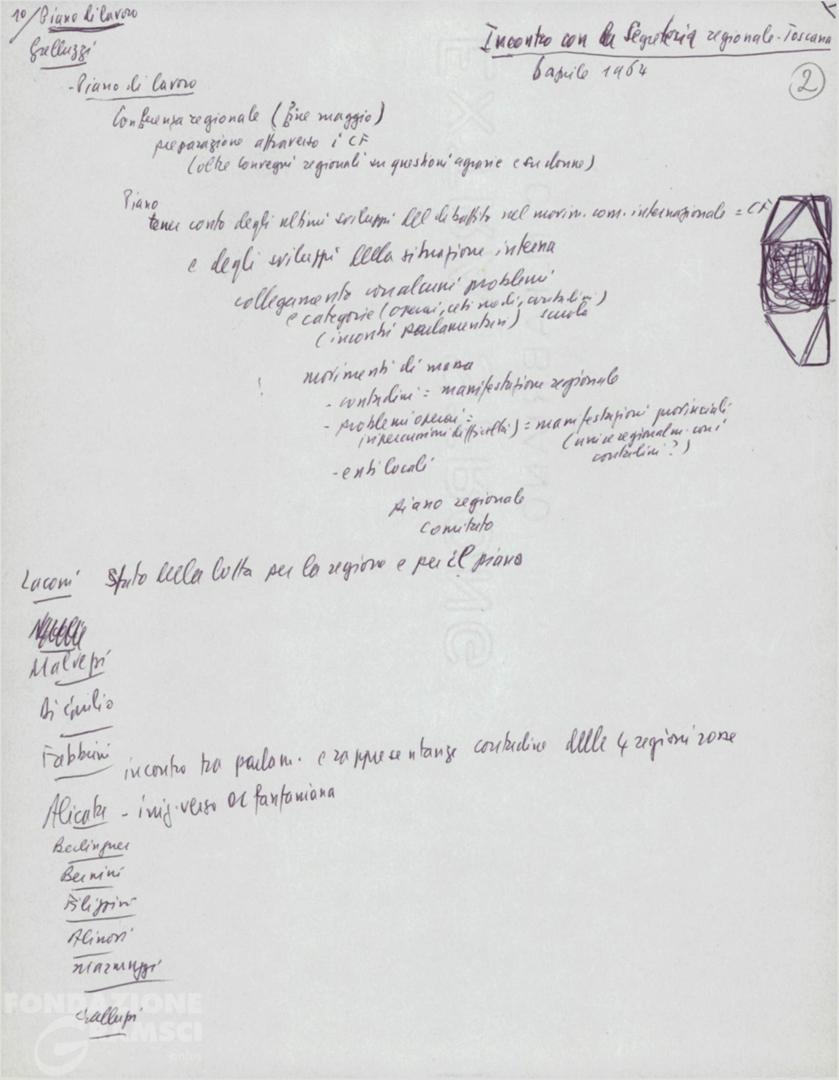 10/ Piano di lavoro
Incontro con la Segreteria regionale - Toscana
6 aprile 1964
2
Galluzzi
- Piano di lavoro
Conferenza regionale (fine maggio)
preparazione attraverso i CF
(oltre convegni regionali su questioni agrarie e su donne)
Piano
tener conto degli ultimi sviluppi del dibattito nel movim. com. internazionale = CF
e degli sviluppi della situazione interna
collegamento con alcuni problemi
e categorie (operai, ceti medi, contadini)
(incontri parlamentari) scuola
movimenti di massa
- contadini = manifestazione regionale
- problemi operai =
(ripercussioni difficoltà) = manifestazioni provinciali
(unire regionalm. con i
contadini?)
- enti locali
piano regionale
Comitato
Laconi Stato della lotta per la regione e per il piano
Malvezzi
Di Giulio
Fabbrini incontro tra parlam. e rappresentanze contadine delle 4 regioni rosse
Alicata - iniz. verso DC fanfaniana
Berlinguer
Bernini
Filippini
Alinovi
Marmuggi
Galluzzi
FONDAZIONE
GRAMSCI
onlus